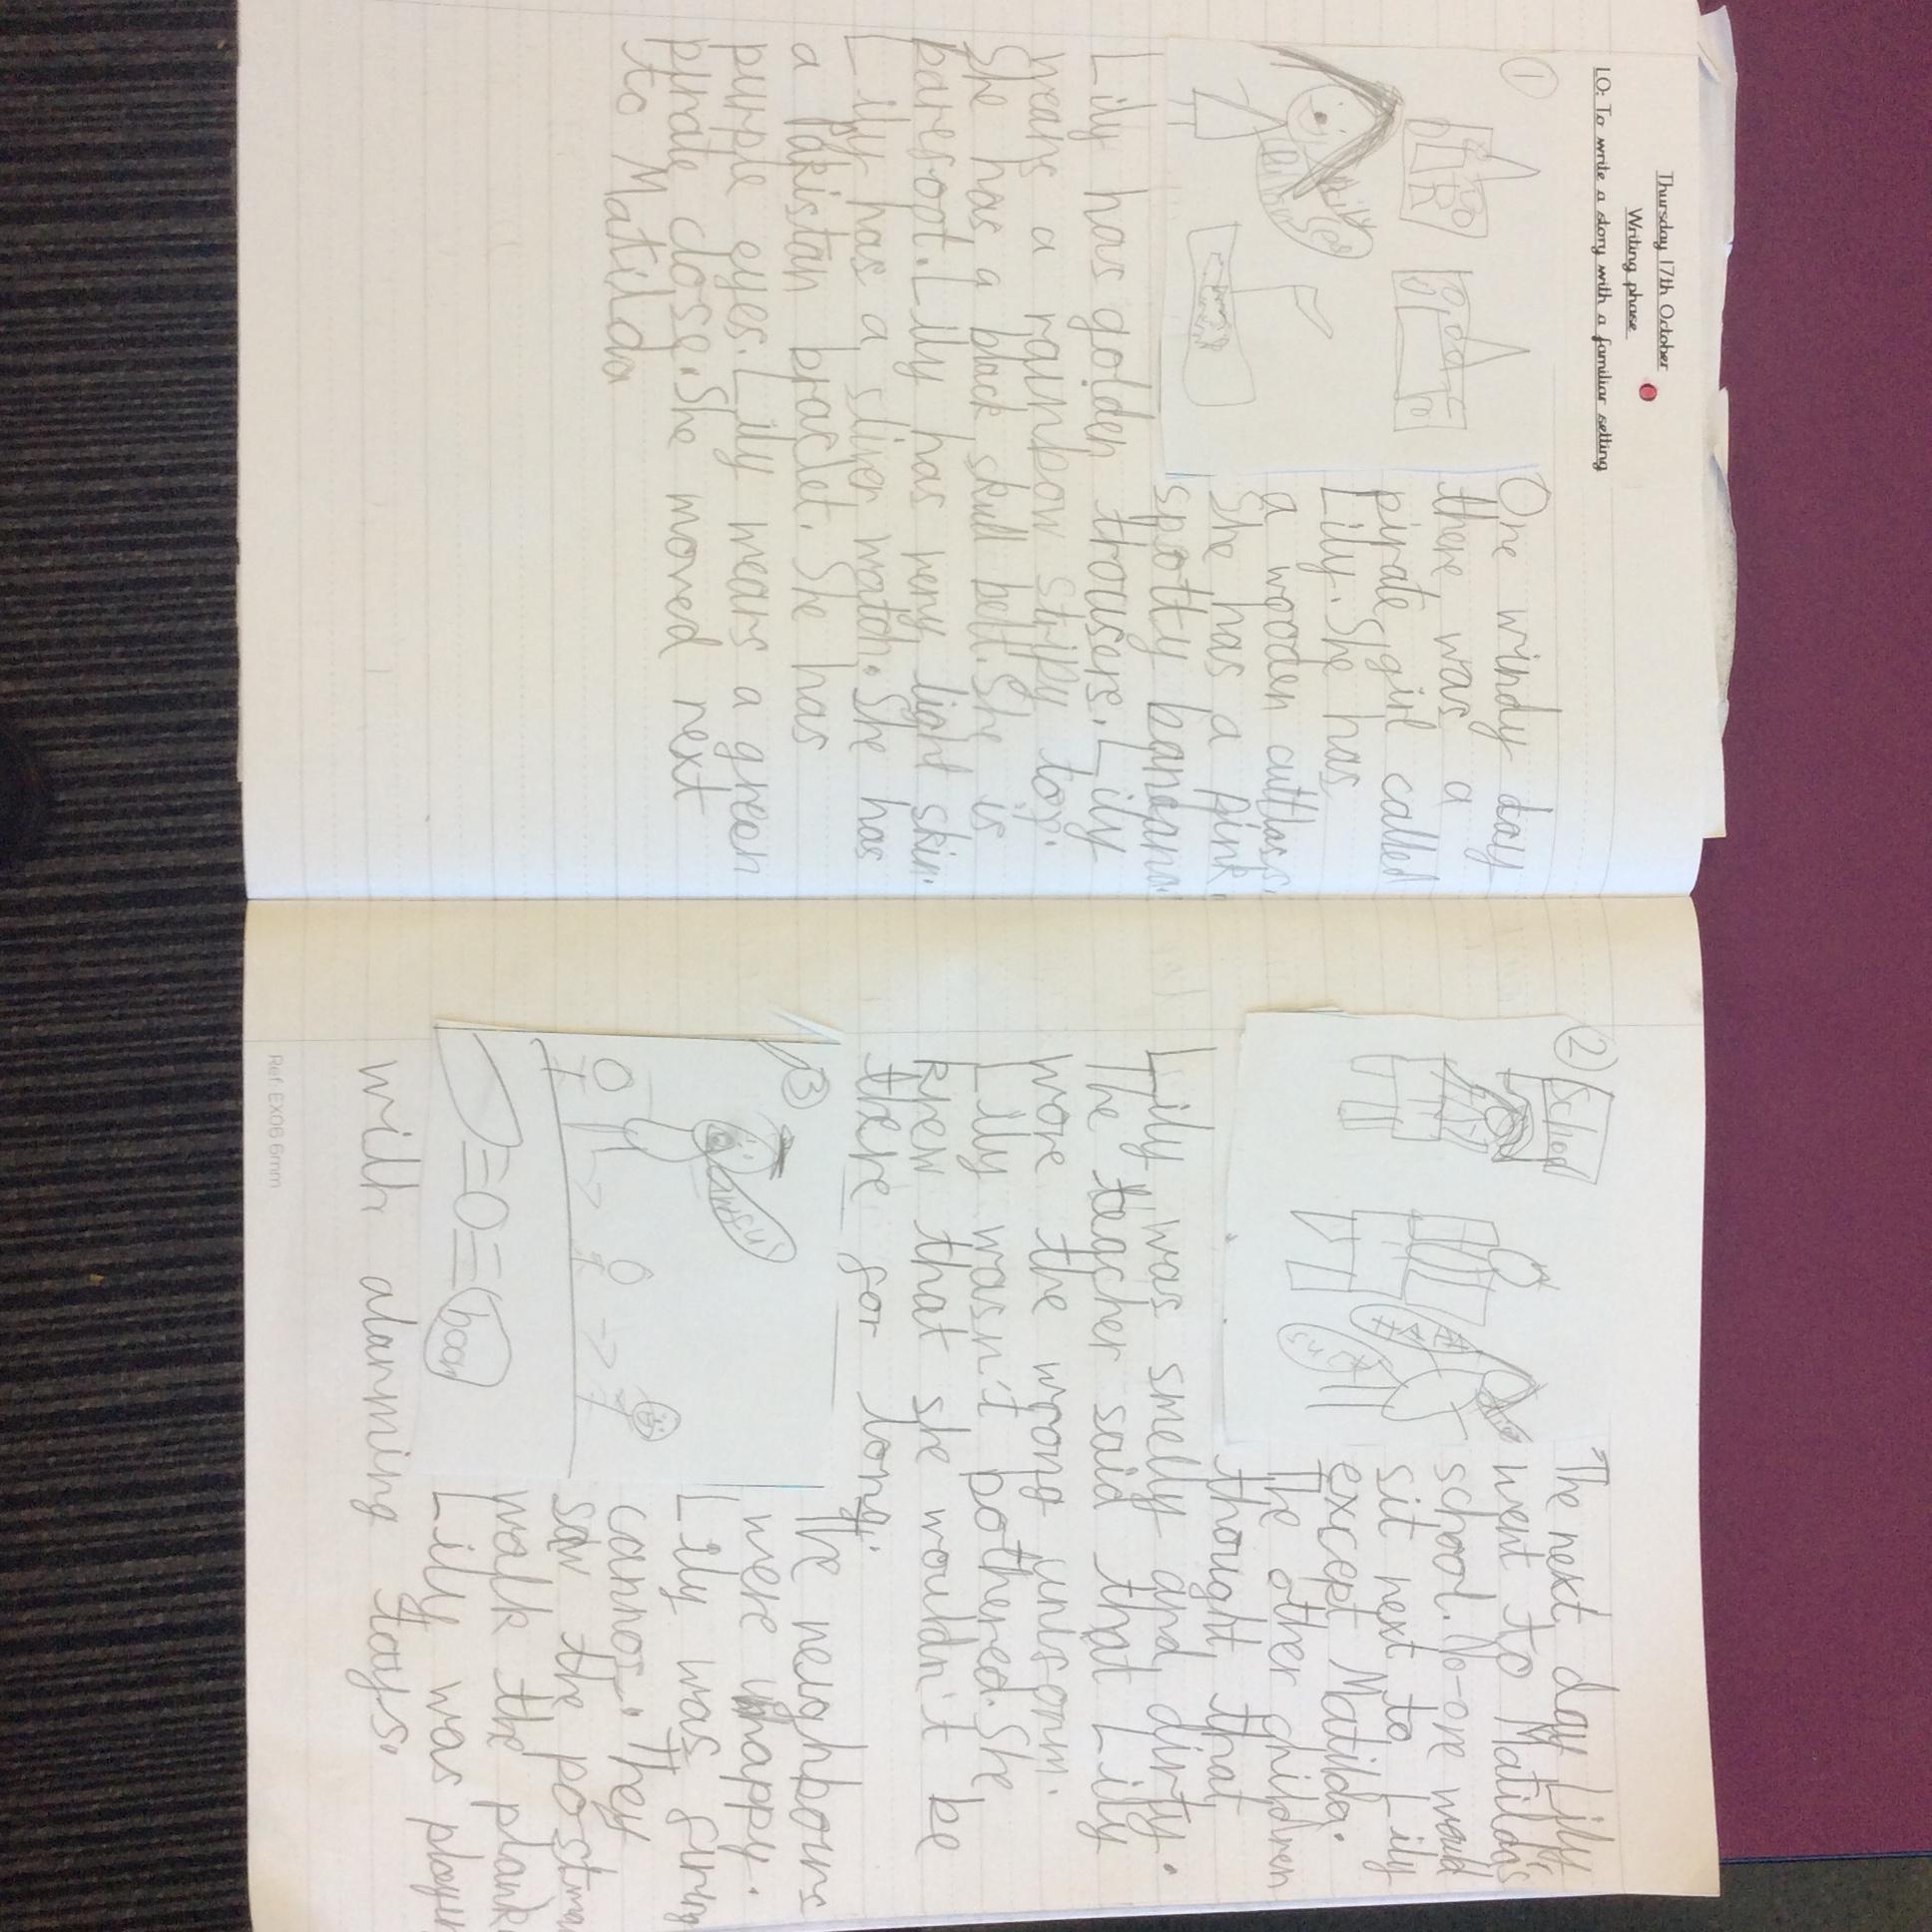 Thursday 17th October
Writing phase
LO: To write a story with a familiar setting
1
One windy day
there was a
pirate girl called
Lily. She has
a wooden cuttlass.
She has a pink
spotty bandana.
Lily has golden trousers. Lily
wears a rainbow stripy top.
She has a black skull belt. She is
barefoot. Lily has very light skin.
Lily has a sliver watch. She has
a Pakistan braclet. She has
purple eyes. Lily wears a green
pirate close. She moved next
to Matilda
2
School
The next day Lily
went to Matilda's
school. No-one would
sit next to Lily
except Matilda.
The other children
thought that
Lily was smelly and dirty.
The teacher said that Lily
wore the wrong uniform.
Lily wasn't bothered. She
knew that she wouldn't be
there for long.
3
boom
The neighbours
were unhappy.
Lily was firing
cannot. They
saw the postma
walk the plank
Lily was playin
with alarming toys.
Ref: EX06 6mm